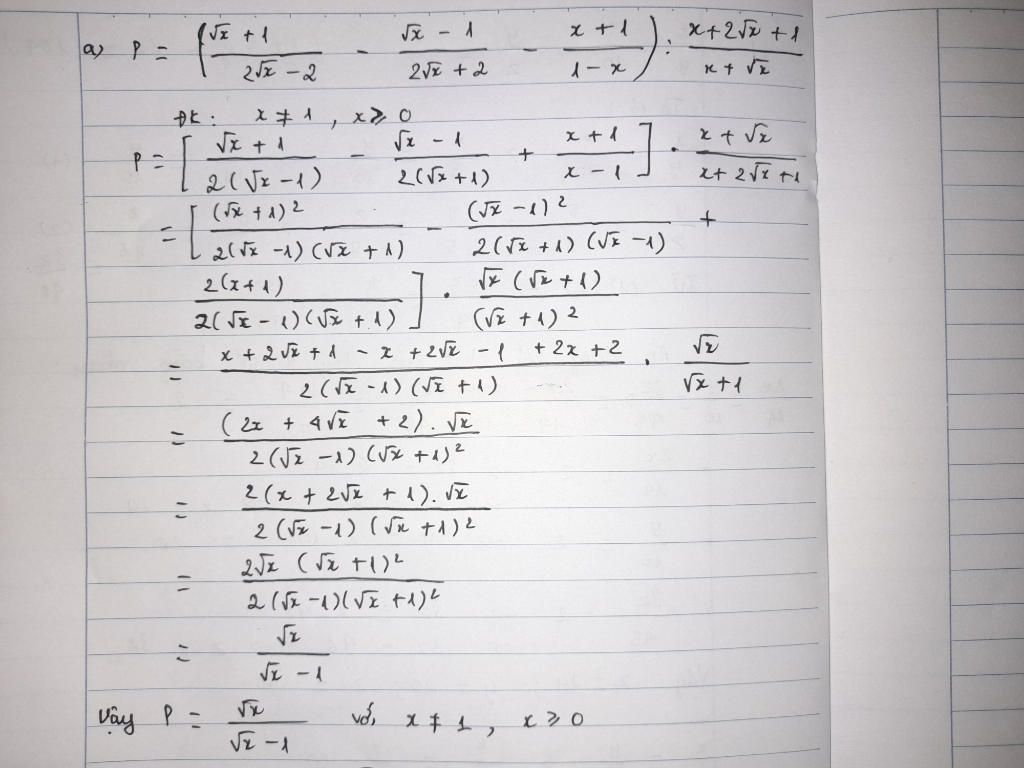 a) P = ( (√x + 1)/(2√x − 2) − (√x − 1)/(2√x + 2) − (x + 1)/(1 − x) ) : (x + 2√x + 1)/(x + √x)
ĐK : x ≠ 1 , x ⩾ 0
P = [ (√x + 1)/(2(√x − 1)) − (√x − 1)/(2(√x + 1)) + (x + 1)/(x − 1) ] . (x + √x)/(x + 2√x + 1)
= [ (√x + 1)²/(2(√x − 1)(√x + 1)) − (√x − 1)²/(2(√x + 1)(√x − 1)) +
2(x + 1)/(2(√x − 1)(√x + 1)) ] . √x(√x + 1)/(√x + 1)²
= (x + 2√x + 1 − x + 2√x − 1 + 2x + 2)/(2(√x − 1)(√x + 1)) . √x/(√x + 1)
= (2x + 4√x + 2).√x/(2(√x − 1)(√x + 1)²)
= 2(x + 2√x + 1).√x/(2(√x − 1)(√x + 1)²)
= 2√x(√x + 1)²/(2(√x − 1)(√x + 1)²)
= √x/(√x − 1)
Vậy P = √x/(√x − 1) với x ≠ 1 , x ⩾ 0